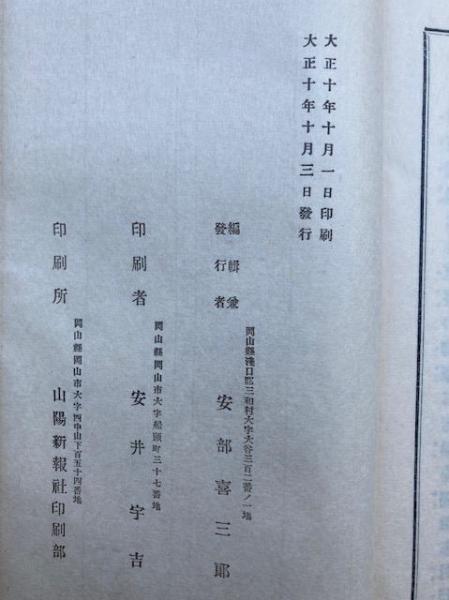 大正十年十月一日印刷
大正十年十月三日發行
編輯兼
發行者
岡山縣淺口郡三和村大字大谷三百二番ノ一地
安部喜三郎
印刷者
岡山縣岡山市大字船頭町三十七番地
安井宇吉
印刷所
岡山縣岡山市大字四中山下百五十四番地
山陽新報社印刷部